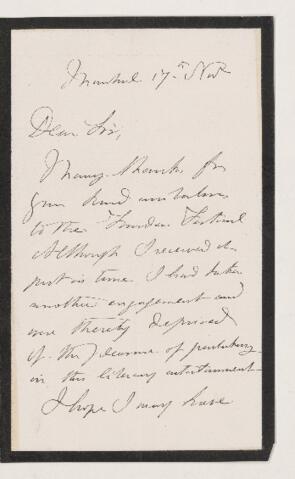 17th Nov
Dear Sir,
Many thanks for
your kind
to the Festival
Although I received it
just in time I had taken
another engagement and
was thereby deprived
of the pleasure of partaking
in this literary entertainment
I hope I may have